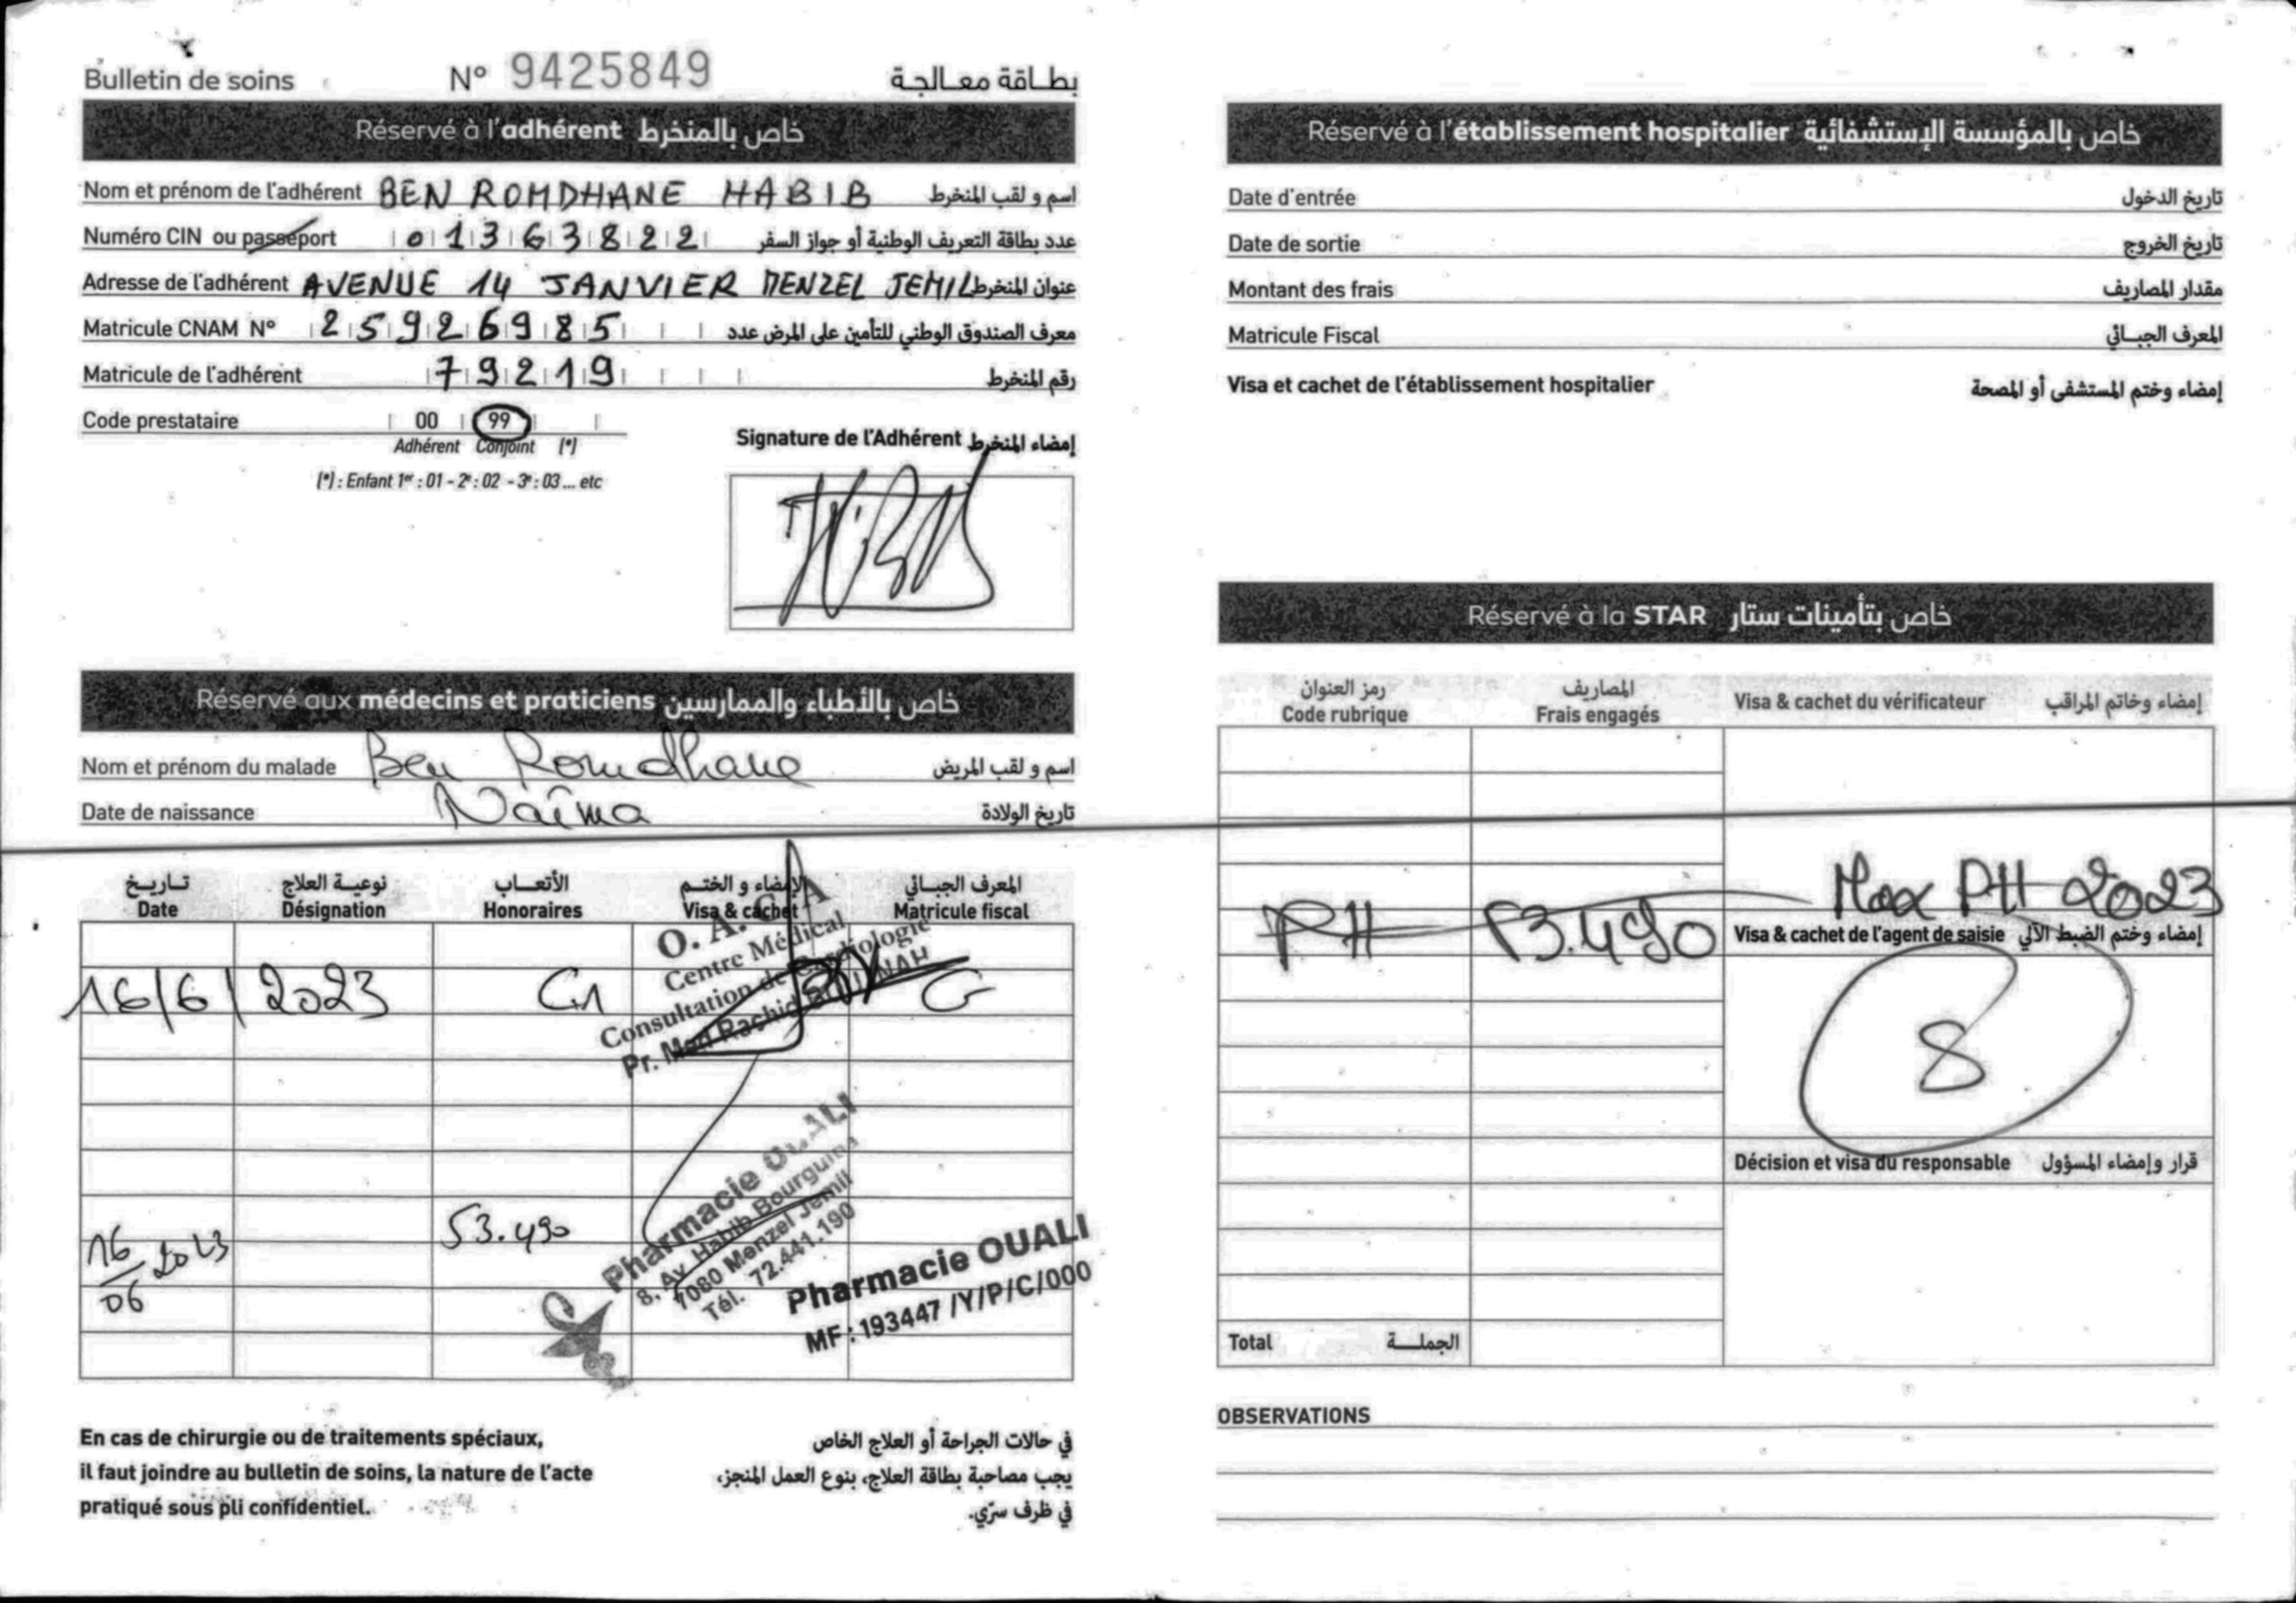 Bulletin de soins N° 9425849 بطاقة معالجة
Réservé à l'adhérent خاص بالمنخرط
Nom et prénom de l'adhérent BEN ROMDHANE HABIB اسم و لقب المنخرط
Numéro CIN ou passeport 01363822 عدد بطاقة التعريف الوطنية أو جواز السفر
Adresse de l'adhérent AVENUE 14 JANVIER MENZEL JEMIL عنوان المنخرط
Matricule CNAM N° 25926985 معرف الصندوق الوطني للتأمين على المرض عدد
Matricule de l'adhérent 79219 رقم المنخرط
Code prestataire 00 99
Adhérent Conjoint (*)
(*) : Enfant 1er : 01 - 2e : 02 - 3e : 03 ... etc
Signature de l'Adhérent إمضاء المنخرط
Réservé aux médecins et praticiens خاص بالأطباء والممارسين
Nom et prénom du malade Ben Romdhane اسم و لقب المريض
Date de naissance Naîma تاريخ الولادة
تاريخ نوعية العلاج الأتعاب الإمضاء و الختم المعرف الجبائي
Date Désignation Honoraires Visa & cachet Matricule fiscal
O. A. C A
Centre Médical
Consultation de Cardiologie
Pr. Med Rachid
16/6/2023 C1 G
53.490
16/06 2023
Pharmacie OUALI
8, Av Habib Bourguiba
7080 Menzel Jemil
Tél. 72.441.190
Pharmacie OUALI
MF : 193447 /Y/P/C/000
En cas de chirurgie ou de traitements spéciaux,
il faut joindre au bulletin de soins, la nature de l'acte
pratiqué sous pli confidentiel.
في حالات الجراحة أو العلاج الخاص
يجب مصاحبة بطاقة العلاج، بنوع العمل المنجز،
في ظرف سرّي.
Réservé à l'établissement hospitalier خاص بالمؤسسة الإستشفائية
Date d'entrée تاريخ الدخول
Date de sortie تاريخ الخروج
Montant des frais مقدار المصاريف
Matricule Fiscal المعرف الجبائي
Visa et cachet de l'établissement hospitalier إمضاء وختم المستشفى أو المصحة
Réservé à la STAR خاص بتأمينات ستار
رمز العنوان المصاريف
Code rubrique Frais engagés Visa & cachet du vérificateur إمضاء وخاتم المراقب
Max PH 2023
PH 53.490
Visa & cachet de l'agent de saisie إمضاء وختم الضبط الآلي
8
Décision et visa du responsable قرار وإمضاء المسؤول
Total الجملة
OBSERVATIONS